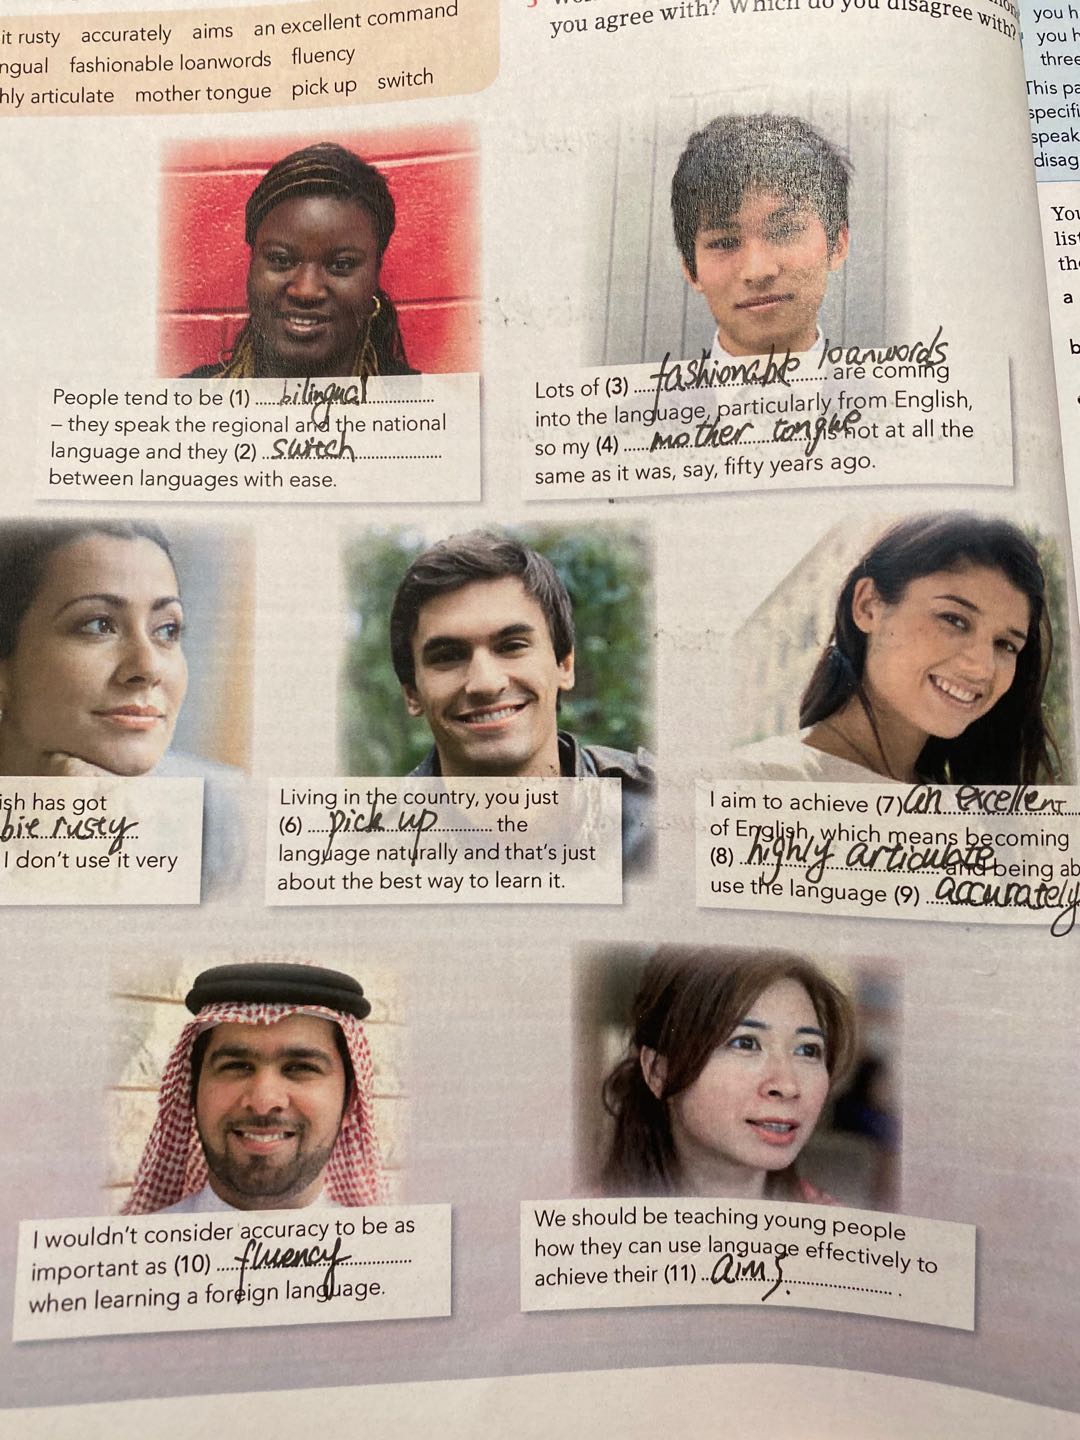 it rusty accurately aims an excellent command
ngual fashionable loanwords fluency
hly articulate mother tongue pick up switch
you agree with? Which do you disagree with?
you h
you h
three
This pa
specifi
speak
disag
You
list
the
a
b
People tend to be (1) bilingual
– they speak the regional and the national
language and they (2) switch
between languages with ease.
Lots of (3) fashionable loanwords are coming
into the language, particularly from English,
so my (4) mother tongue is not at all the
same as it was, say, fifty years ago.
ish has got
bit rusty
I don't use it very
Living in the country, you just
(6) pick up the
language naturally and that's just
about the best way to learn it.
I aim to achieve (7) an excellent
of English, which means becoming
(8) highly articulate and being ab
use the language (9) accurately
I wouldn't consider accuracy to be as
important as (10) fluency
when learning a foreign language.
We should be teaching young people
how they can use language effectively to
achieve their (11) aims.